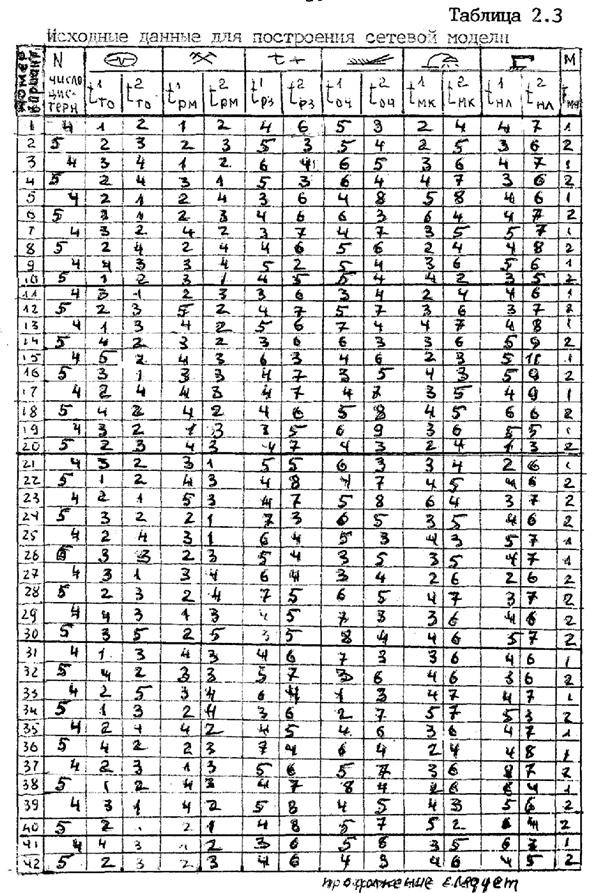 Таблица 2.3
Исходные данные для построения сетевой модели
номер вариант. N число цис- терн t¹то t²то t¹рм t²рм t¹рз t²рз t¹оч t²оч t¹мк t²мк t¹нл t²нл М
1 4 1 2 1 2 4 6 5 3 2 4 4 7 1
2 5 2 3 2 3 5 3 5 4 2 5 3 6 2
3 4 3 4 1 2 6 4 6 5 3 6 4 7 1
4 5 2 4 3 1 5 3 6 4 4 7 3 6 2
5 4 2 1 2 4 3 6 4 8 5 8 4 6 1
6 5 3 1 2 3 4 6 6 3 6 4 4 7 2
7 4 3 2 4 2 3 7 4 7 3 5 5 7 1
8 5 2 4 2 4 4 6 5 6 2 4 4 8 2
9 4 4 3 3 4 5 2 5 4 3 6 5 6 1
10 5 1 2 3 1 4 5 5 4 4 2 3 5 2
11 4 3 1 2 3 3 6 3 4 2 4 4 6 1
12 5 2 3 5 2 4 7 5 7 3 6 3 7 2
13 4 1 3 4 2 5 6 7 4 4 7 4 8 1
14 5 4 2 3 2 3 6 6 3 3 6 5 9 2
15 4 5 2 4 3 6 3 4 6 2 3 5 1
16 5 3 1 3 3 4 7 3 5 4 3 5 9 2
17 4 2 4 4 3 4 7 4 7 3 5 4 9 1
18 5 4 2 4 2 4 6 5 8 4 5 6 6 2
19 4 3 2 1 3 3 5 6 9 3 6 5 5 1
20 5 2 3 4 3 4 7 4 3 2 4 1 3 2
21 4 3 2 3 1 5 5 6 3 3 4 2 6 1
22 5 1 2 4 3 4 8 4 7 4 5 4 6 2
23 4 2 1 5 3 4 7 5 8 6 4 3 7 2
24 5 3 2 2 1 7 3 6 5 3 5 4 6 2
25 4 2 4 3 1 6 4 5 3 4 3 5 7 1
26 5 3 3 2 3 5 4 3 5 3 5 4 7 1
27 4 3 1 3 4 6 4 3 4 2 6 2 6 2
28 5 2 3 2 4 7 5 6 5 4 7 3 7 2
29 4 4 3 1 3 4 5 7 3 3 6 4 6 2
30 5 3 5 2 5 3 5 8 4 4 6 5 7 2
31 4 1 3 4 3 4 6 7 3 3 6 4 6 1
32 5 4 2 3 3 5 7 3 6 4 6 3 6 2
33 4 2 5 3 4 6 4 1 3 4 7 4 7 1
34 5 1 3 2 4 3 6 2 7 5 7 5 3 2
35 4 2 4 4 2 4 5 4 6 3 6 4 7 1
36 5 4 2 2 3 7 4 6 4 2 4 4 8 1
37 4 2 3 1 3 5 6 5 7 3 6 8 7 2
38 5 1 2 4 3 4 7 8 4 2 6 6 4 1
39 4 3 1 4 2 5 8 4 5 4 3 5 6 2
40 5 2 2 1 4 8 5 7 5 2 6 4 2
41 4 4 3 2 3 6 5 8 3 5 6 1
42 5 2 3 2 3 4 6 4 9 4 6 4 5 2
продолжение следует